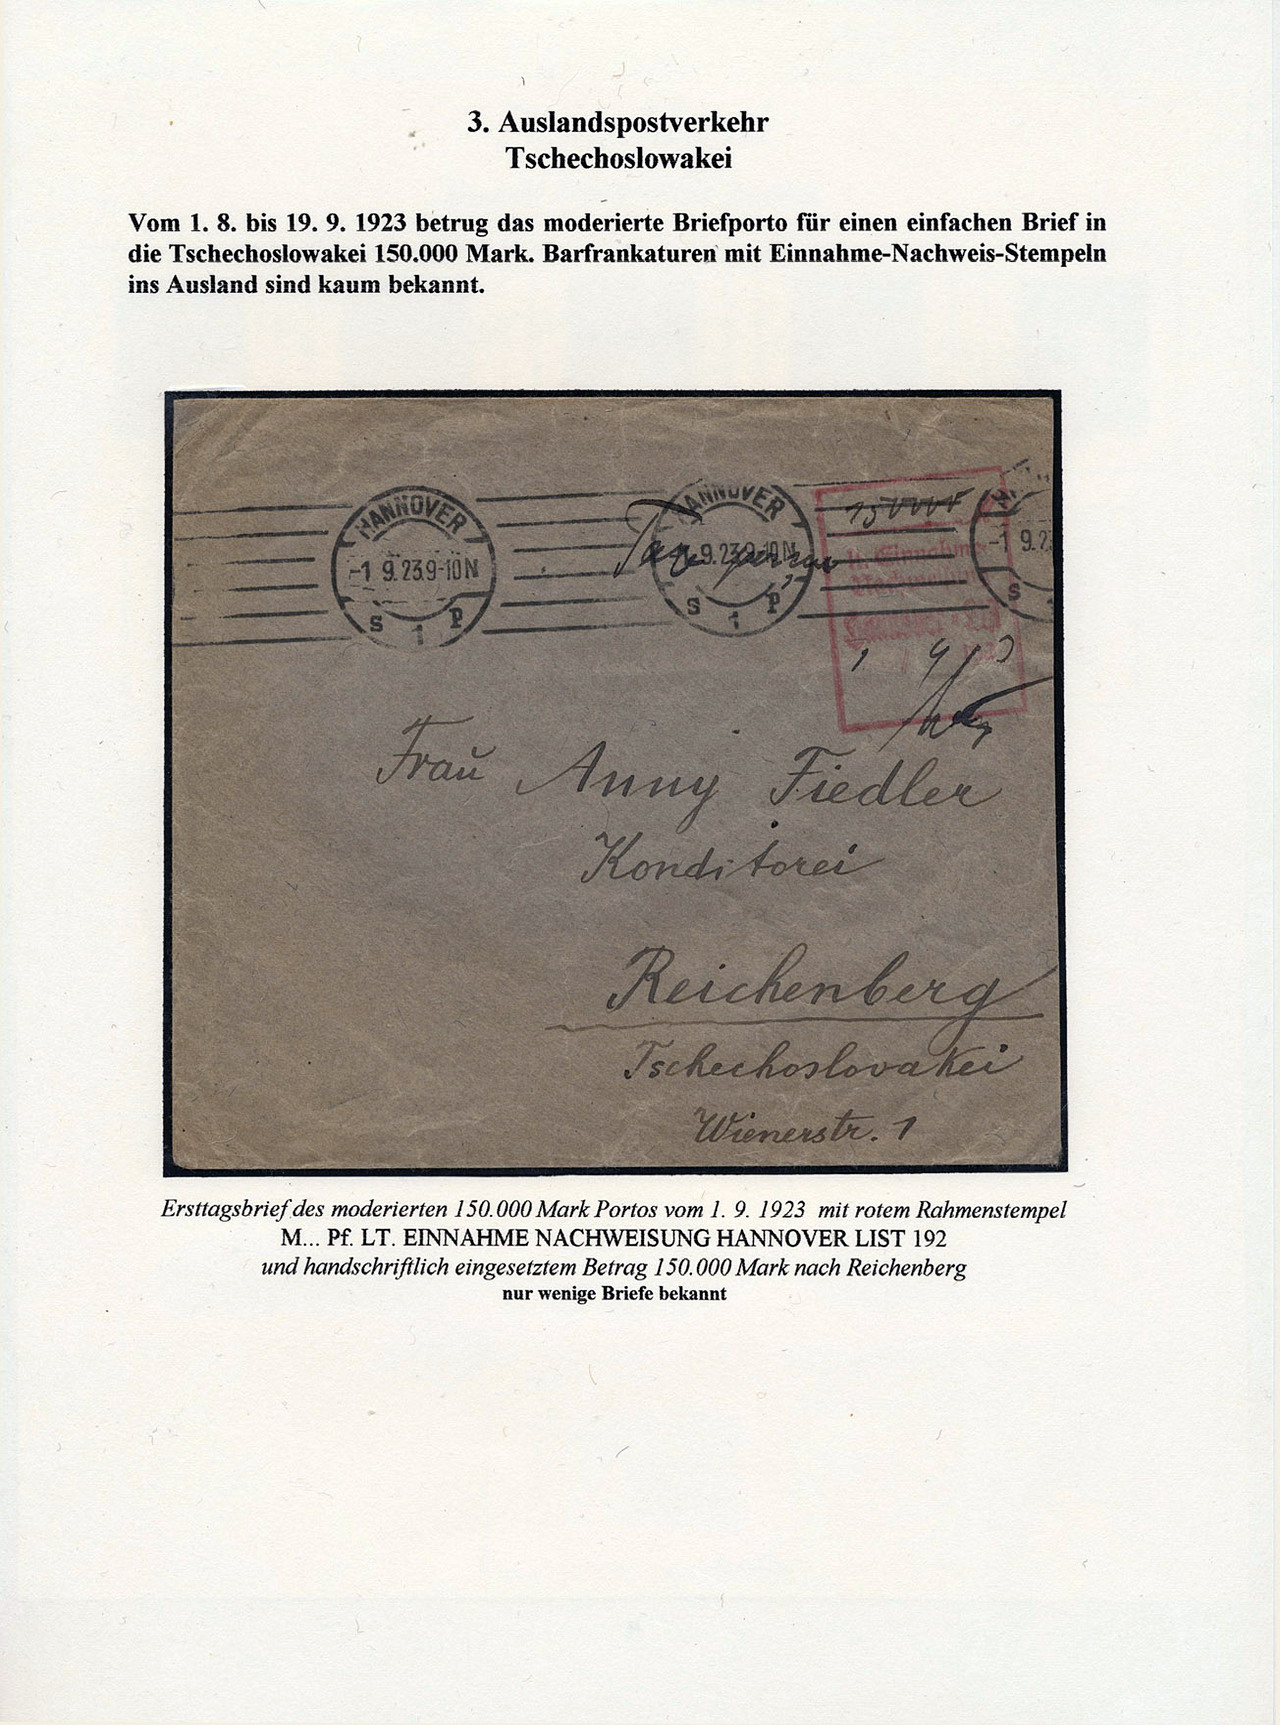 3. Auslandspostverkehr
Tschechoslowakei
Vom 1. 8. bis 19. 9. 1923 betrug das moderierte Briefporto für einen einfachen Brief in
die Tschechoslowakei 150.000 Mark. Barfrankaturen mit Einnahme-Nachweis-Stempeln
ins Ausland sind kaum bekannt.
HANNOVER
-1 9.23.9-10N
S 1 P
HANNOVER
9.23.9-10N
S 1 P
-1 9.23
S 1
Taxe perçue
150000
lt. Einnahme-
Frau Anny Fiedler
Konditorei
Reichenberg
Tschechoslovakei
Wienerstr. 1
Ersttagsbrief des moderierten 150.000 Mark Portos vom 1. 9. 1923 mit rotem Rahmenstempel
M... Pf. LT. EINNAHME NACHWEISUNG HANNOVER LIST 192
und handschriftlich eingesetztem Betrag 150.000 Mark nach Reichenberg
nur wenige Briefe bekannt